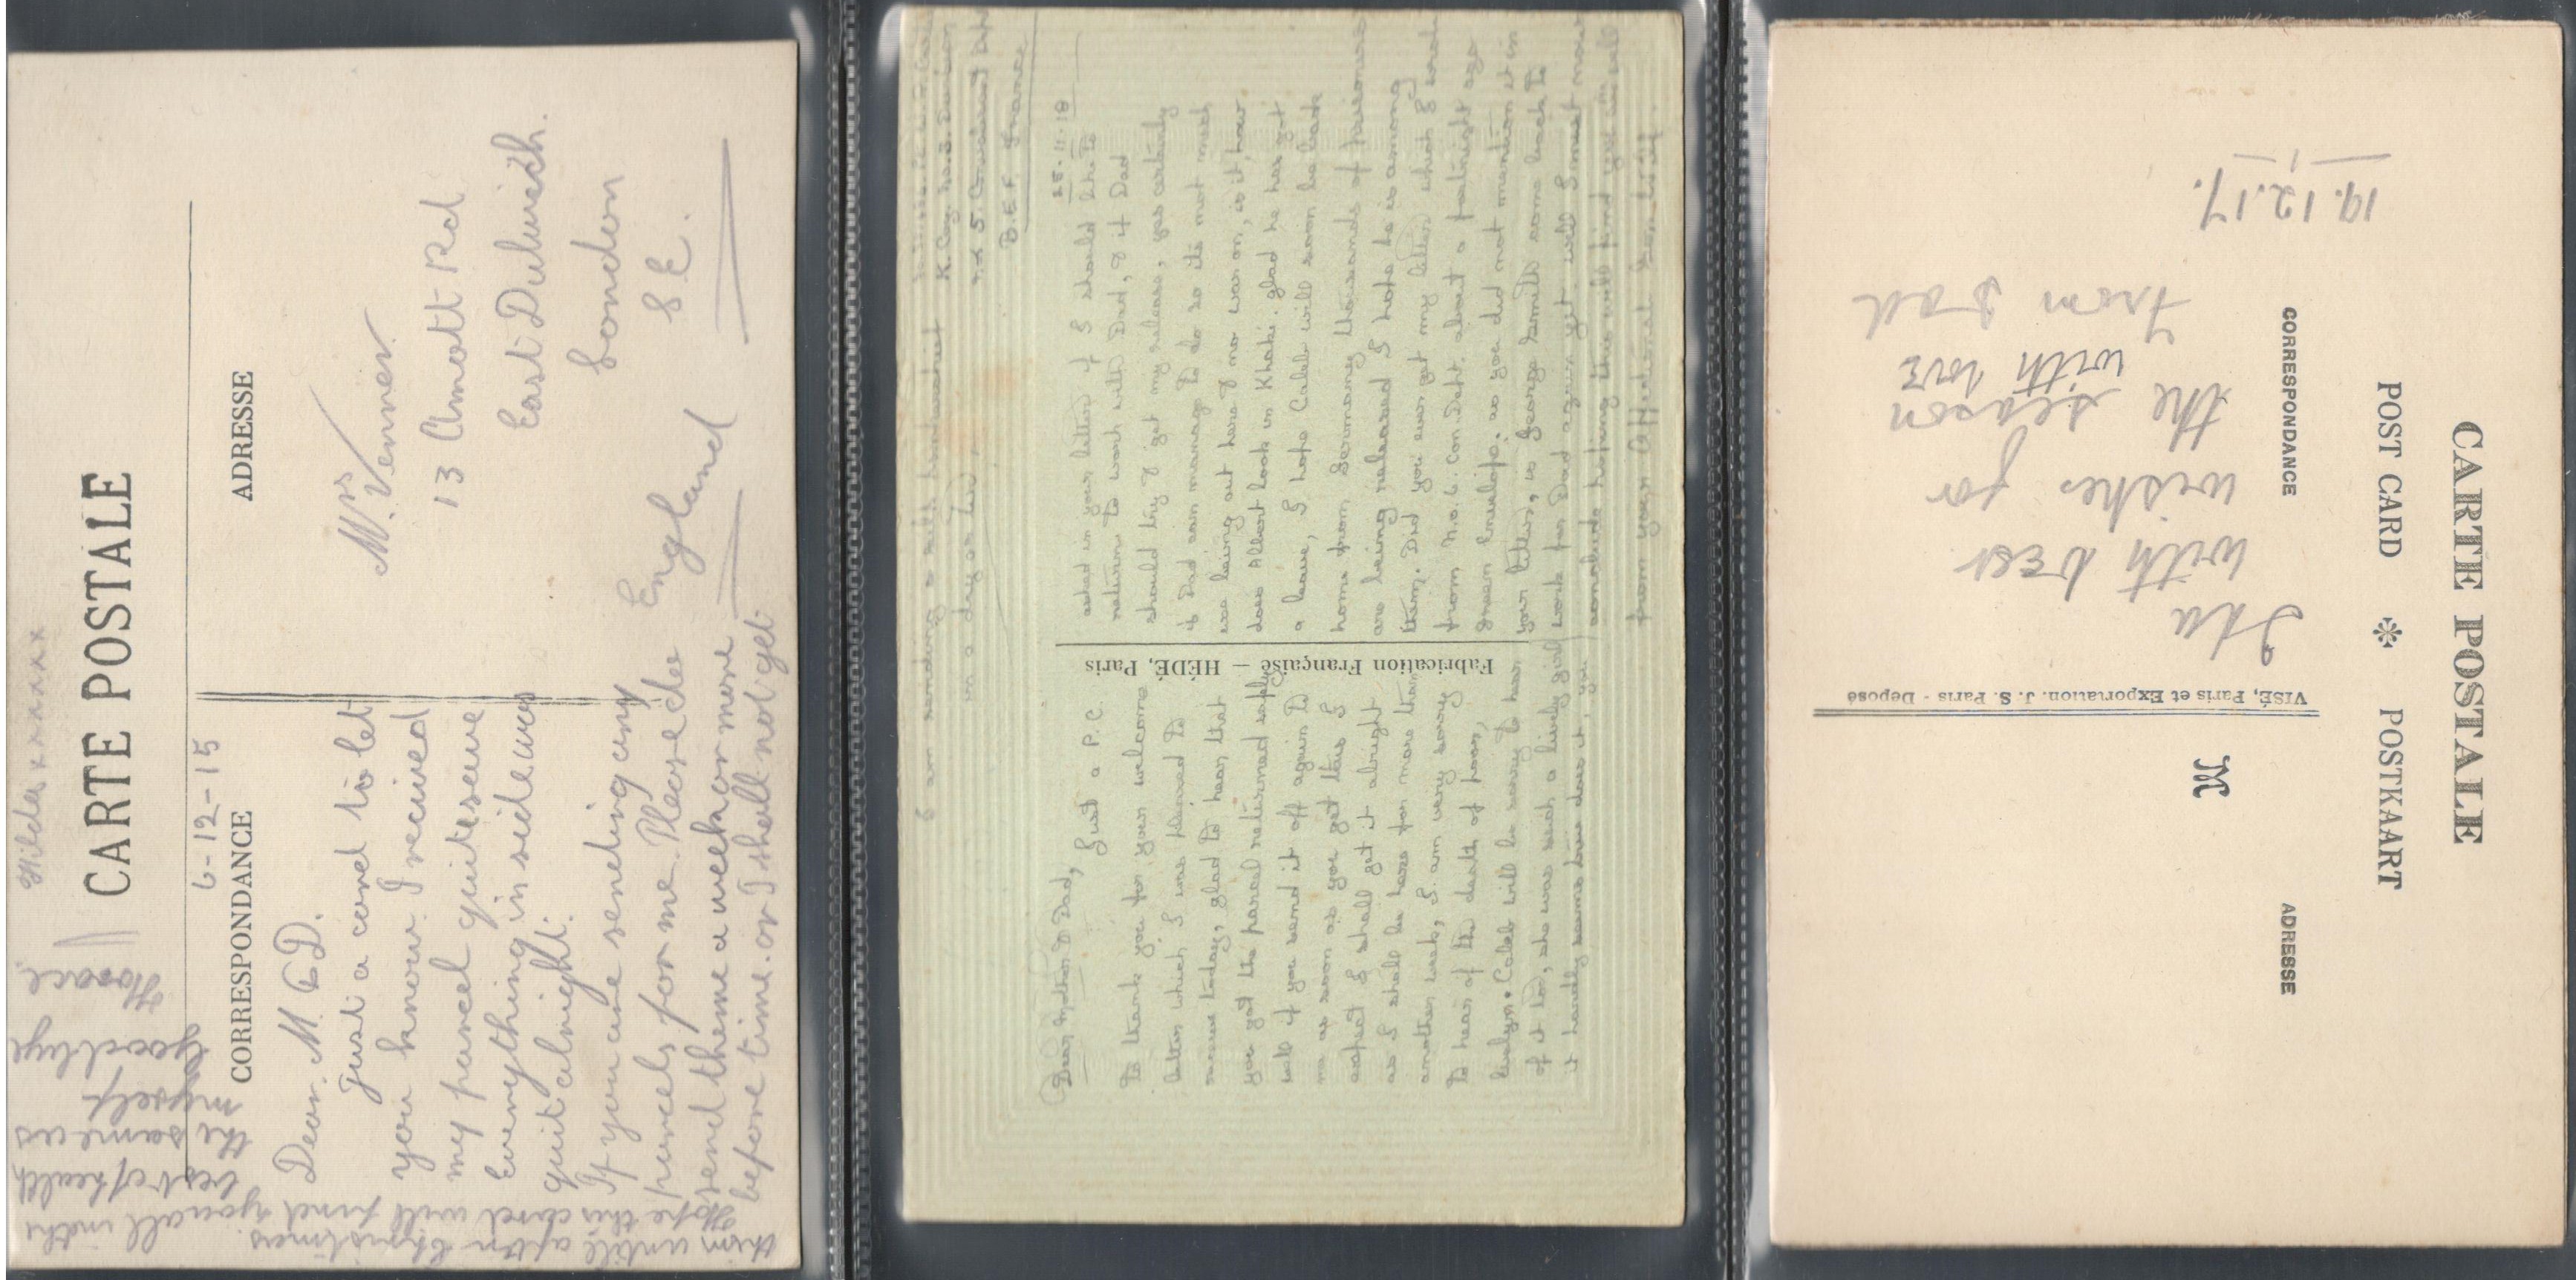 Hilda xxxxxxx
CARTE POSTALE
6-12-15
CORRESPONDANCE
ADRESSE
Dear M & D.
Just a card to let
you know I received
my parcel quite seure
Everything in side was
quit alright.
If you are sending any
parcels for me. Please
send theme a week or more
before time. or I shall not get
them untill after Christmas.
Hope this card will find you all in the
best of health
the same as
myself
Goodbye
Horace
Mrs. Venner
13 Amott Rd
East Dulwich.
London
S.E.
England
I am sending a silk handkerchief
in a day or two.
K. Coy. No. 3.
B.E.F. France
25.11.18
Dear Mother & Dad,
Just a P.C.
to thank you for your welcome
letter which I was pleased to
receive today, glad to hear that
you got the parcel returned safely
will if you send it off again to
me as soon as you get this I
expect I shall get it alright
as I shall be here for more than
another week, I am very sorry
to hear of the death of poor,
Caleb will be sorry to hear
of it too, she was such a lively girl
it hardly seems true does it, you
Fabrication Française — HÉDÉ, Paris
asked in your letter if I should like to
return to work with Dad, & if Dad
should try & get my release, yes certainly
if Dad can manage to do so its not much
use being out here & no war on, is it, how
does Albert look in Khaki. glad he has got
a leave, I hope Caleb will soon be back
home from Germany thousands of prisoners
are being released I hope he is among
them. Did you ever get my letter which I sent
from No. 6. Con. Dept. about a fortnight ago
green Envelope. as you did not mention it in
your letter, is George Smith come back to
work for Dad again yet. will I must now
conclude hoping this will find you all well
from your Affectionat Son
CARTE POSTALE
POST CARD ✻ POSTKAART
CORRESPONDANCE
ADRESSE
VISÉ, Paris et Exportation. J. S. Paris - Déposé
M
19.12.17.
Ida
with best
wishes for
the season
with love
from Dad